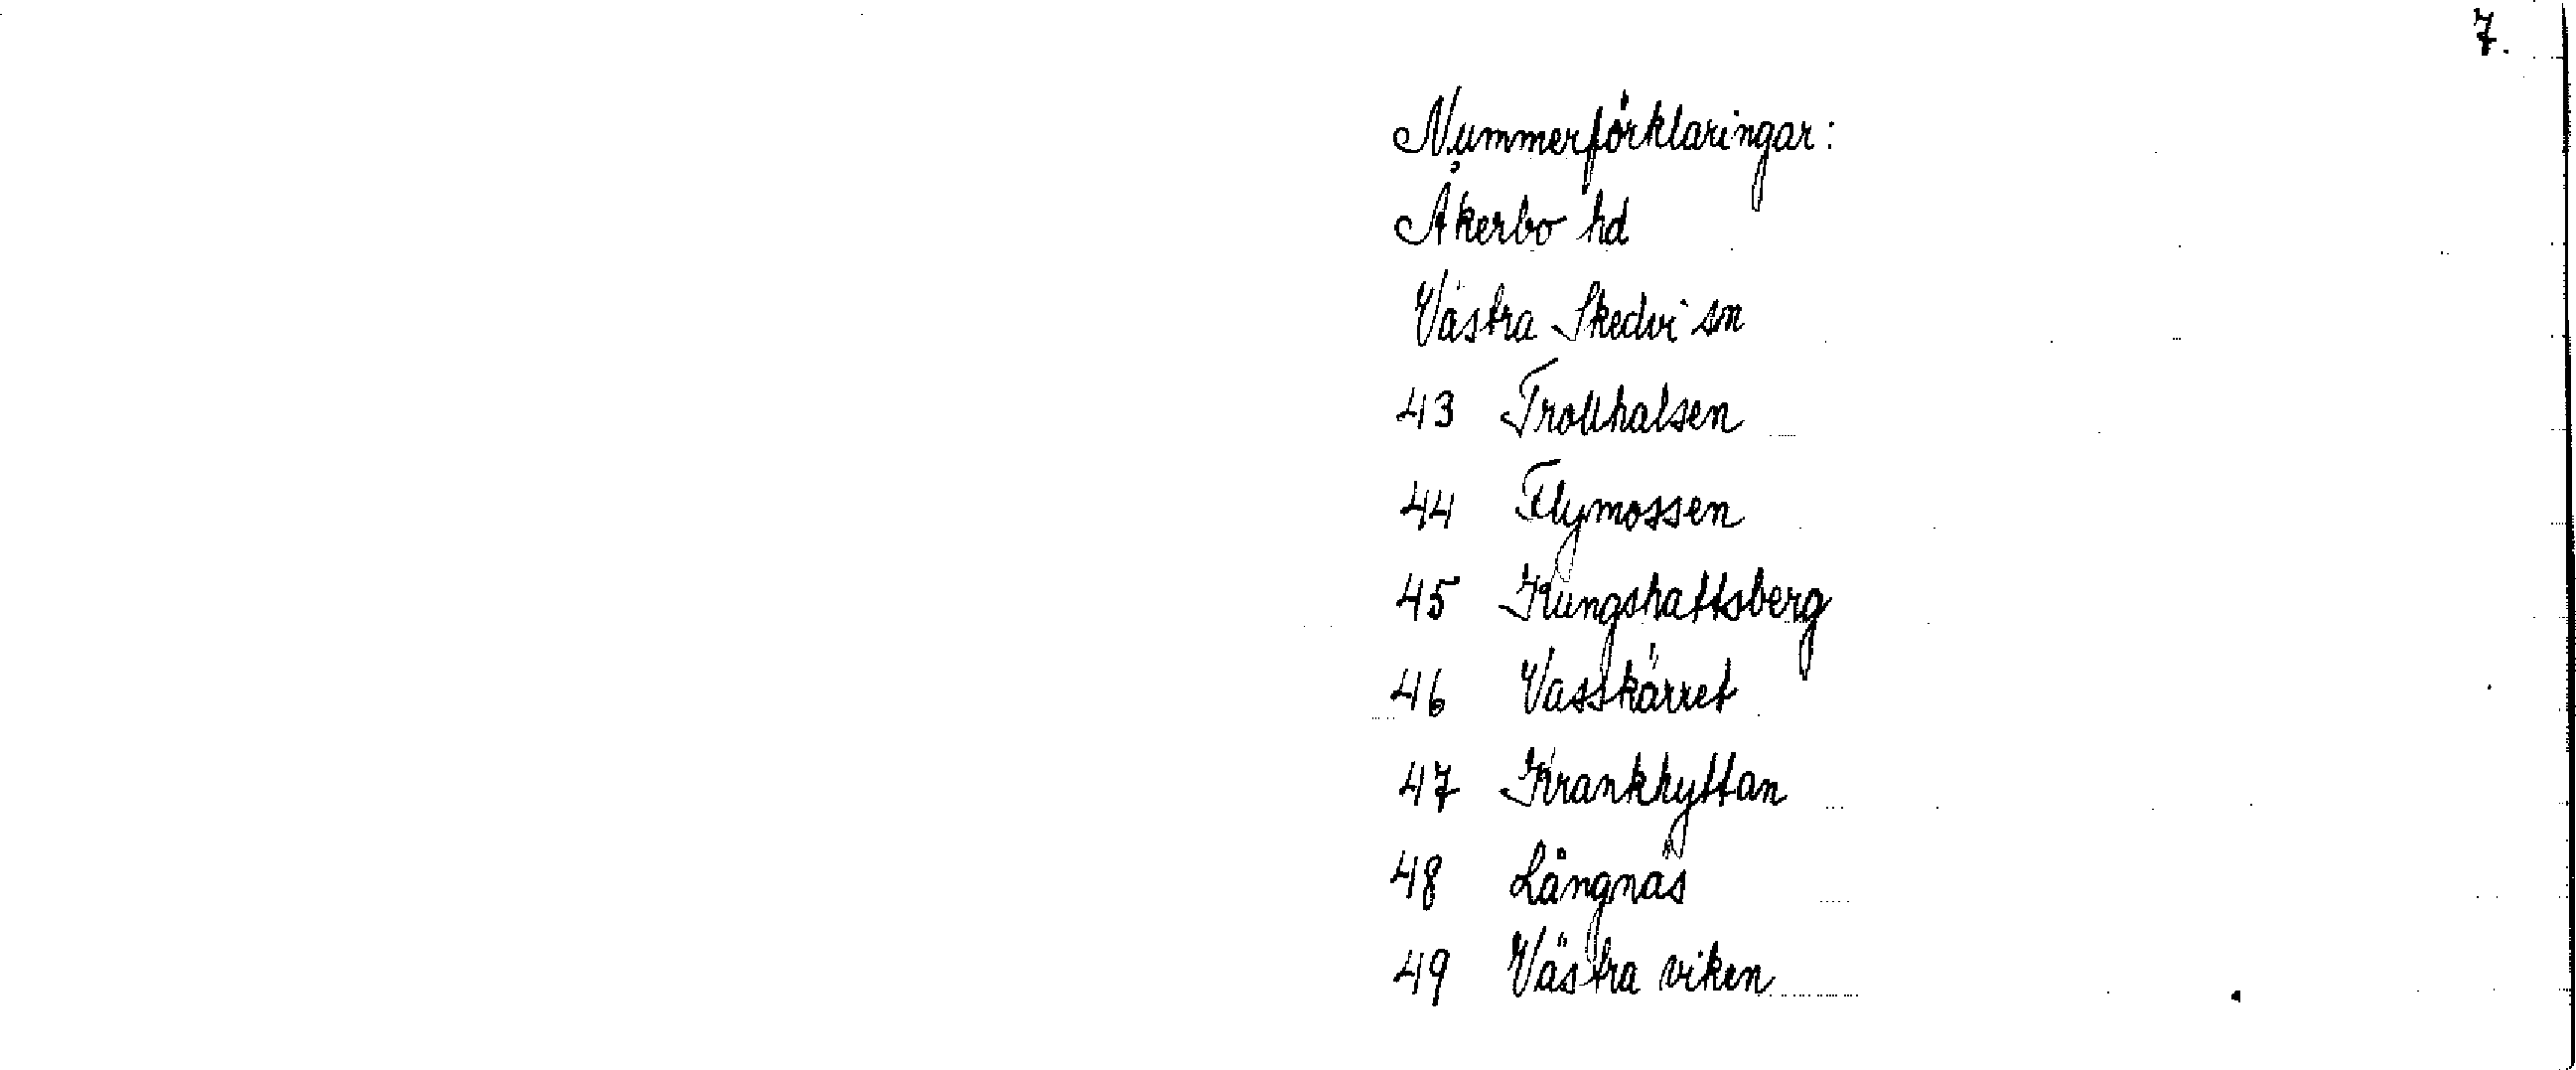 7.
Nummerförklaringar:
Åkerbo hd
Västra Skedvi sn
43 Trollhalsen
44 Flymossen
45 Kungshattsberg
46 Vasskärret
47 Krankhyttan
48 Långnäs
49 Västra viken